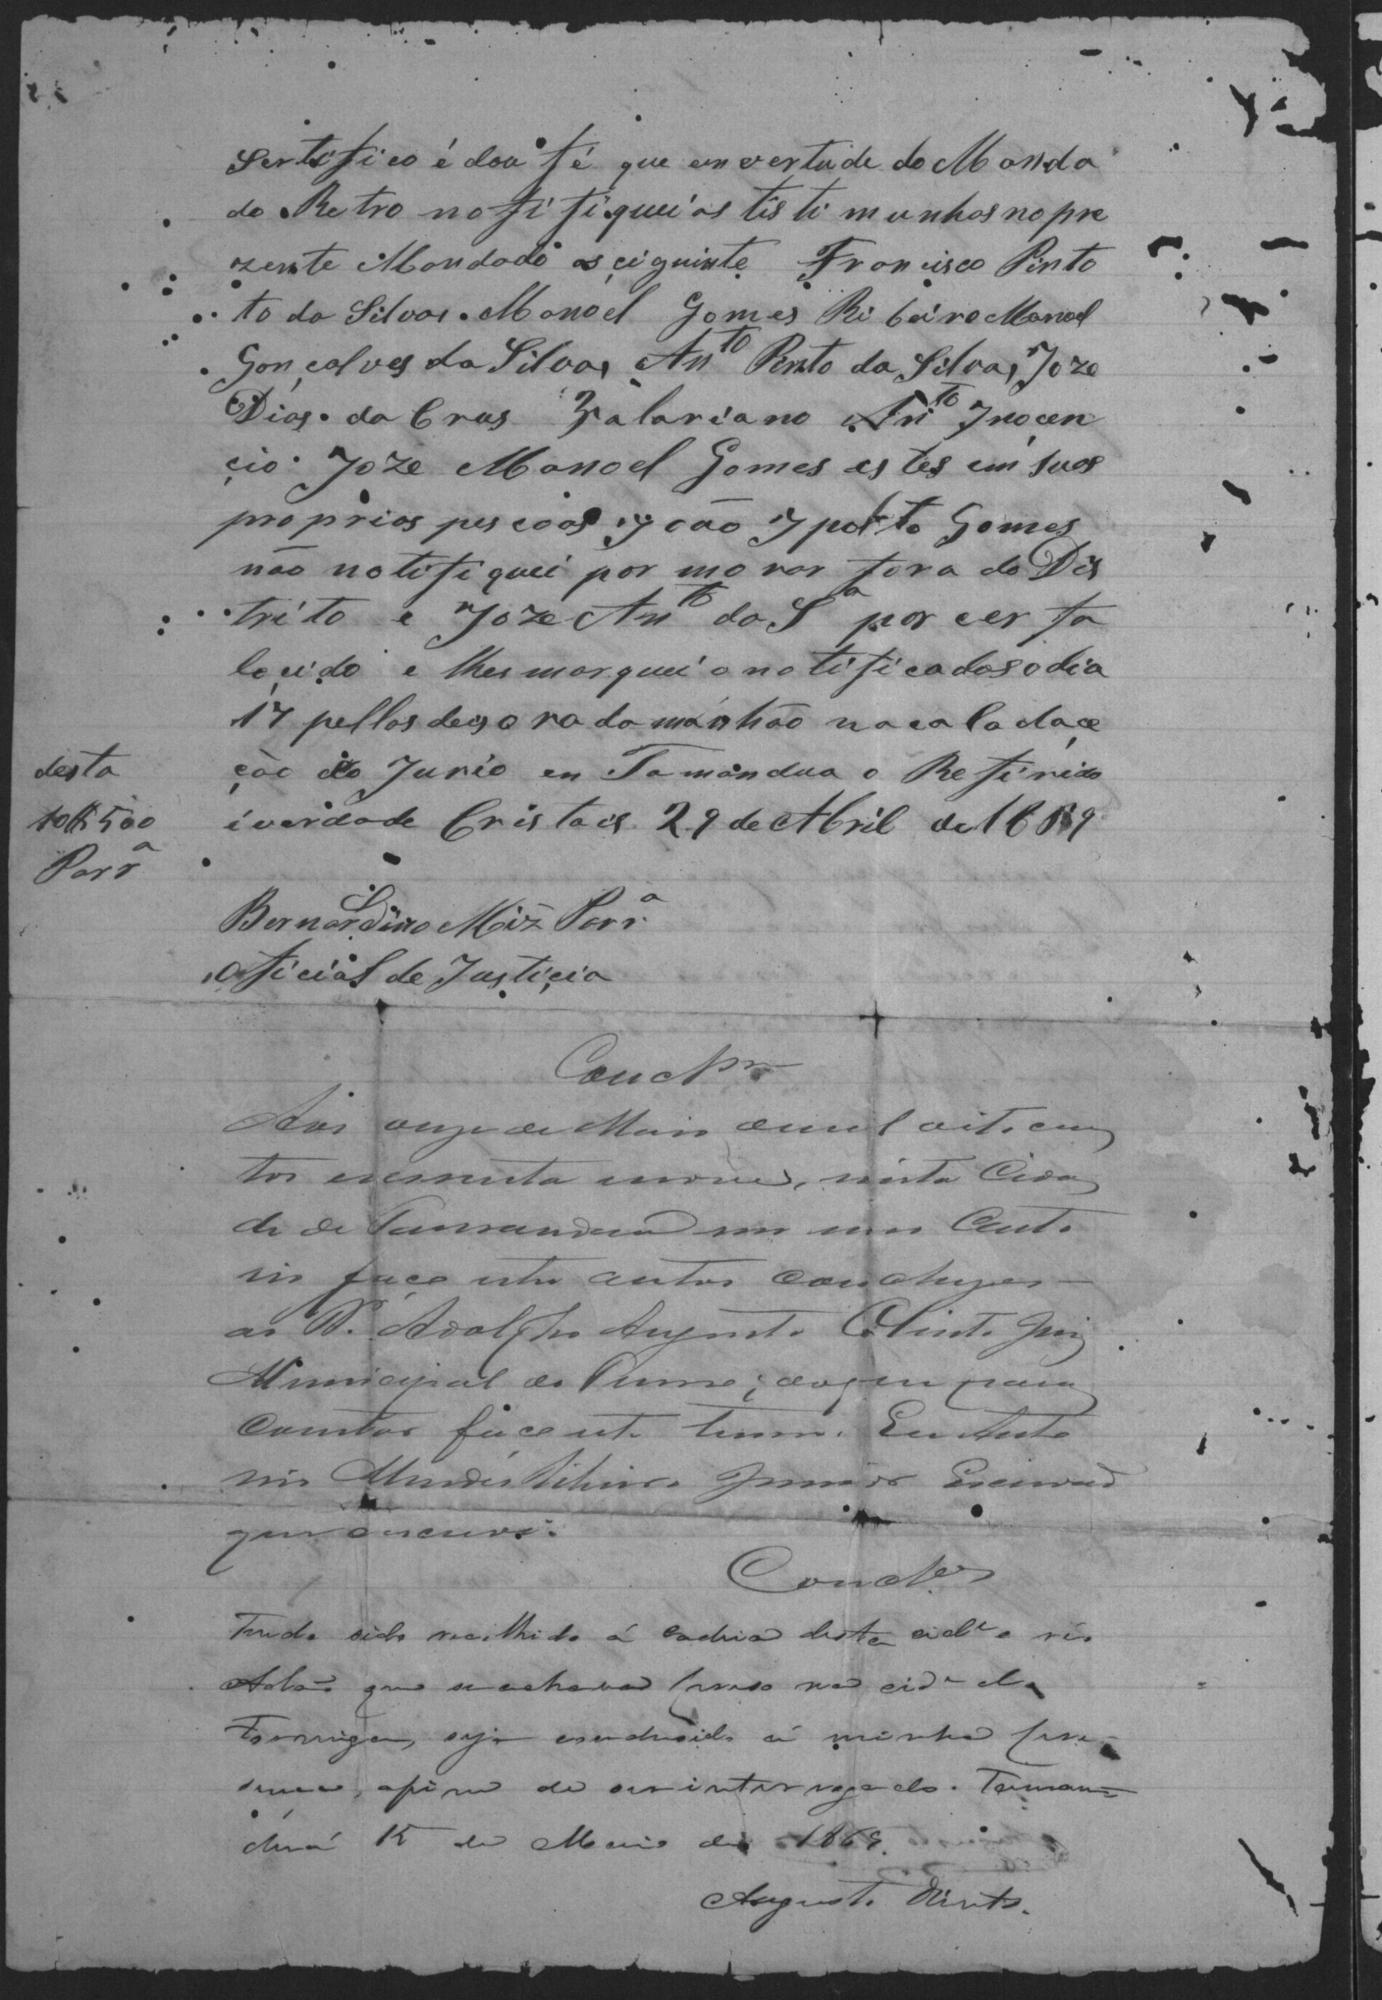 Sertifico é dou fé que em vertude do Manda
do Retro notifiquei as tistimunhas no pre
zente Mandado as ciguinte Francisco Pinto
to da Silva. Manoel Gomes Ribeiro Manoel
Gonçalves da Silva, Anto Pinto da Silva, Joze
Dias da Crus Valariano Anto Inocen
cio Joze Manoel Gomes estes em suas
proprias pescoas Gomes
não notifiquei por morar fora do Dis
trito e Joze Anto da Sa por cer fa
lecido e lhes marquei o notificados o dia
17 pellas des ora da manhão na cala da ce
ção do Jurio en Tamandua o Refirido
é verdade Cristais 29 de Abril de 1869
desta
10$500
Perra
Bernardino Miz Perra
oficial de Justicia
Conclm
Aos onze de Maio de mil oito cen
tos e sessenta e nove, nesta Cida
de de Tamandua em meu Carto
rio faço estes autos conclusos
ao Dr. Adolpho Augusto Olinto Juiz
Municipal do Termo; do que para
constar faço este termo. Eu Anto
nio Mendes Ribeiro Junior Escrivão
que escrevi.
Conclos
Tendo sido recolhido á cadeia desta cide o réo
Adão que se achava preso na cide da
Formiga, seja conduzido á minha pre
sença, afim de ser interrogado. Taman
duá 15 de Maio de 1869.
Augusto Olinto.